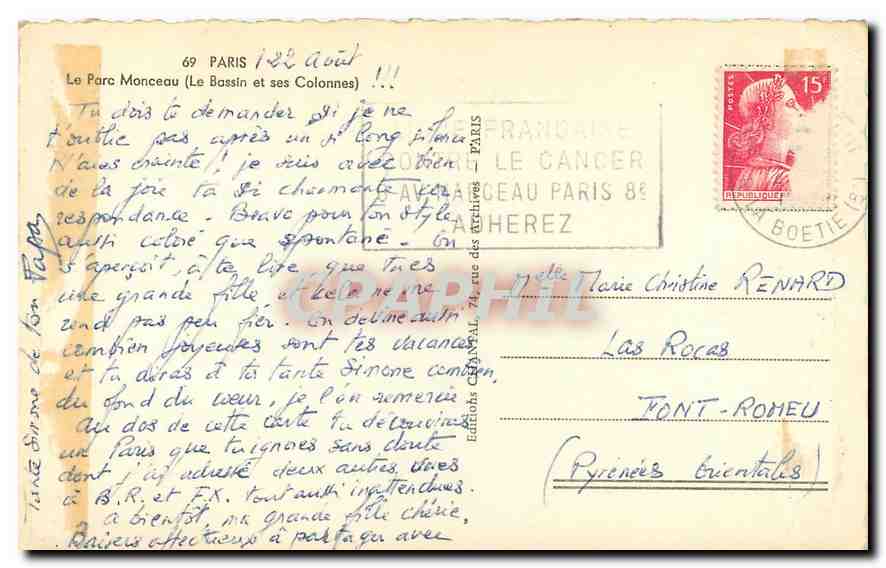 69 PARIS 22 Août
Le Parc Monceau (Le Bassin et ses Colonnes) !!!
Tu dois te demander si je ne
t'oublie pas après un si long silence
N'aies crainte ! je suis avec bien
de la joie ta si charmante cor-
respondance. Bravo pour ton style
aussi coloré que spontané. On
s'aperçoit, à te lire, que tu es
une grande fille et cela ne me
rend pas peu fier. On devine aussi
combien joyeuses sont tes vacances
et tu diras à ta tante Simone combien,
du fond du cœur, je l'en remercie
Au dos de cette carte tu découvriras
un Paris que tu ignores sans doute
dont j'ai adressé deux autres vues
à B.R. et F.X. tout aussi inattendues.
A bientôt, ma grande fille chérie,
Baisers affectueux à partager avec
Tante Simone de ton Papa
Editions CHANTAL, 74, rue des Archives - PARIS
FRANCAISE
CONTRE LE CANCER
AV. PARIS 8e
ADHEREZ
POSTES
15F
REPUBLIQUE
LA BOETIE
CPAPHIL
Melle Marie Christine RENARD
LAS ROCAS
FONT-ROMEU
(Pyrénées Orientales)